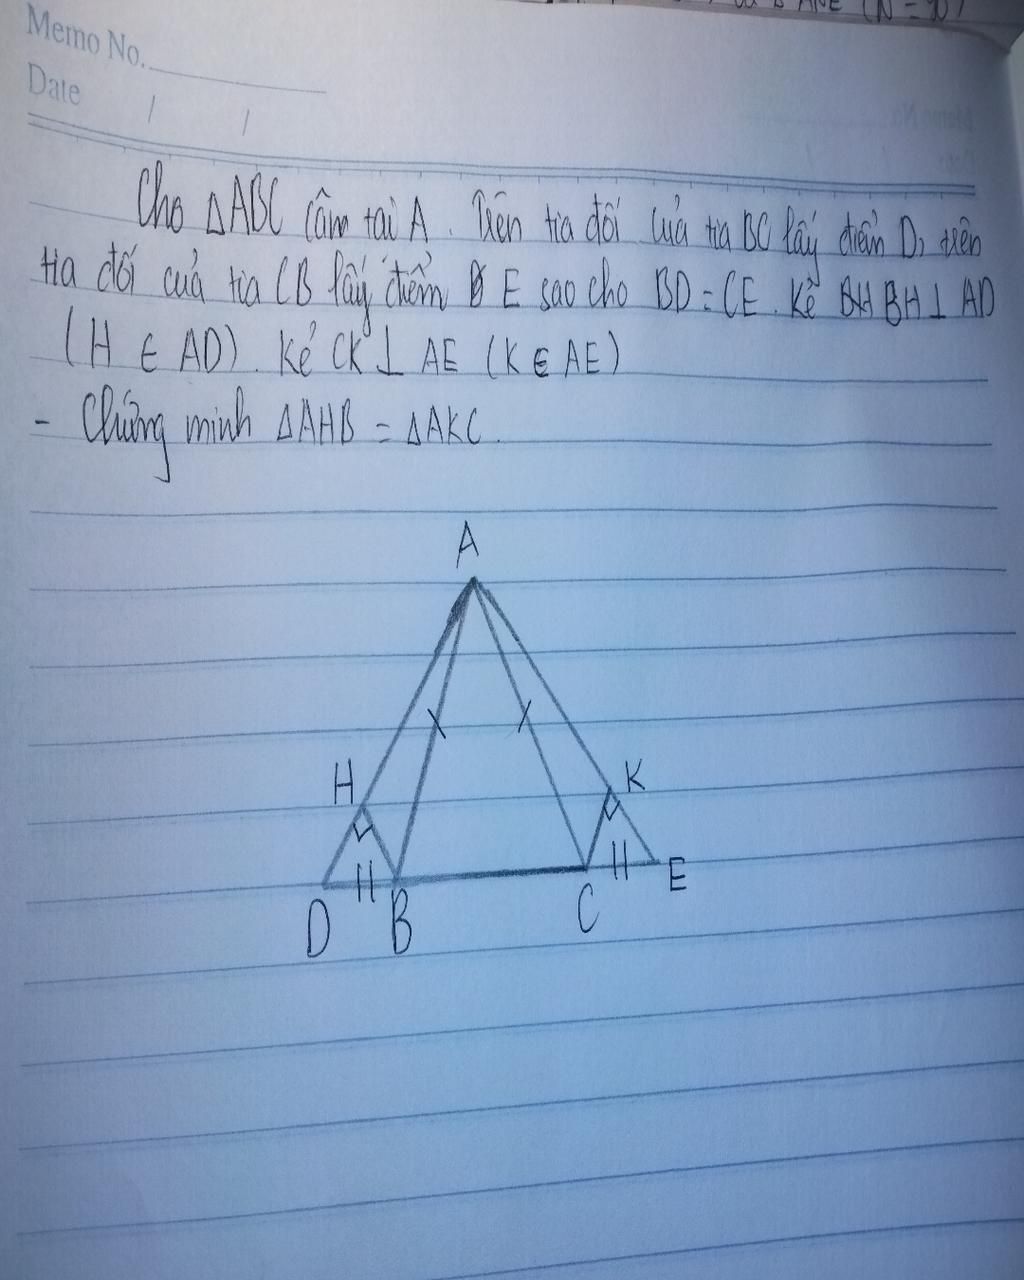 ANE (N = 90)
Memo No.
Date / /
Cho ΔABC cân tại A. Trên tia đối của tia BC lấy điểm D, trên
tia đối của tia CB lấy điểm E sao cho BD = CE. Kẻ BH BH ⊥ AD
(H ∈ AD). Kẻ CK ⊥ AE (K ∈ AE)
- Chứng minh ΔAHB = ΔAKC.
A
H K
D B C E